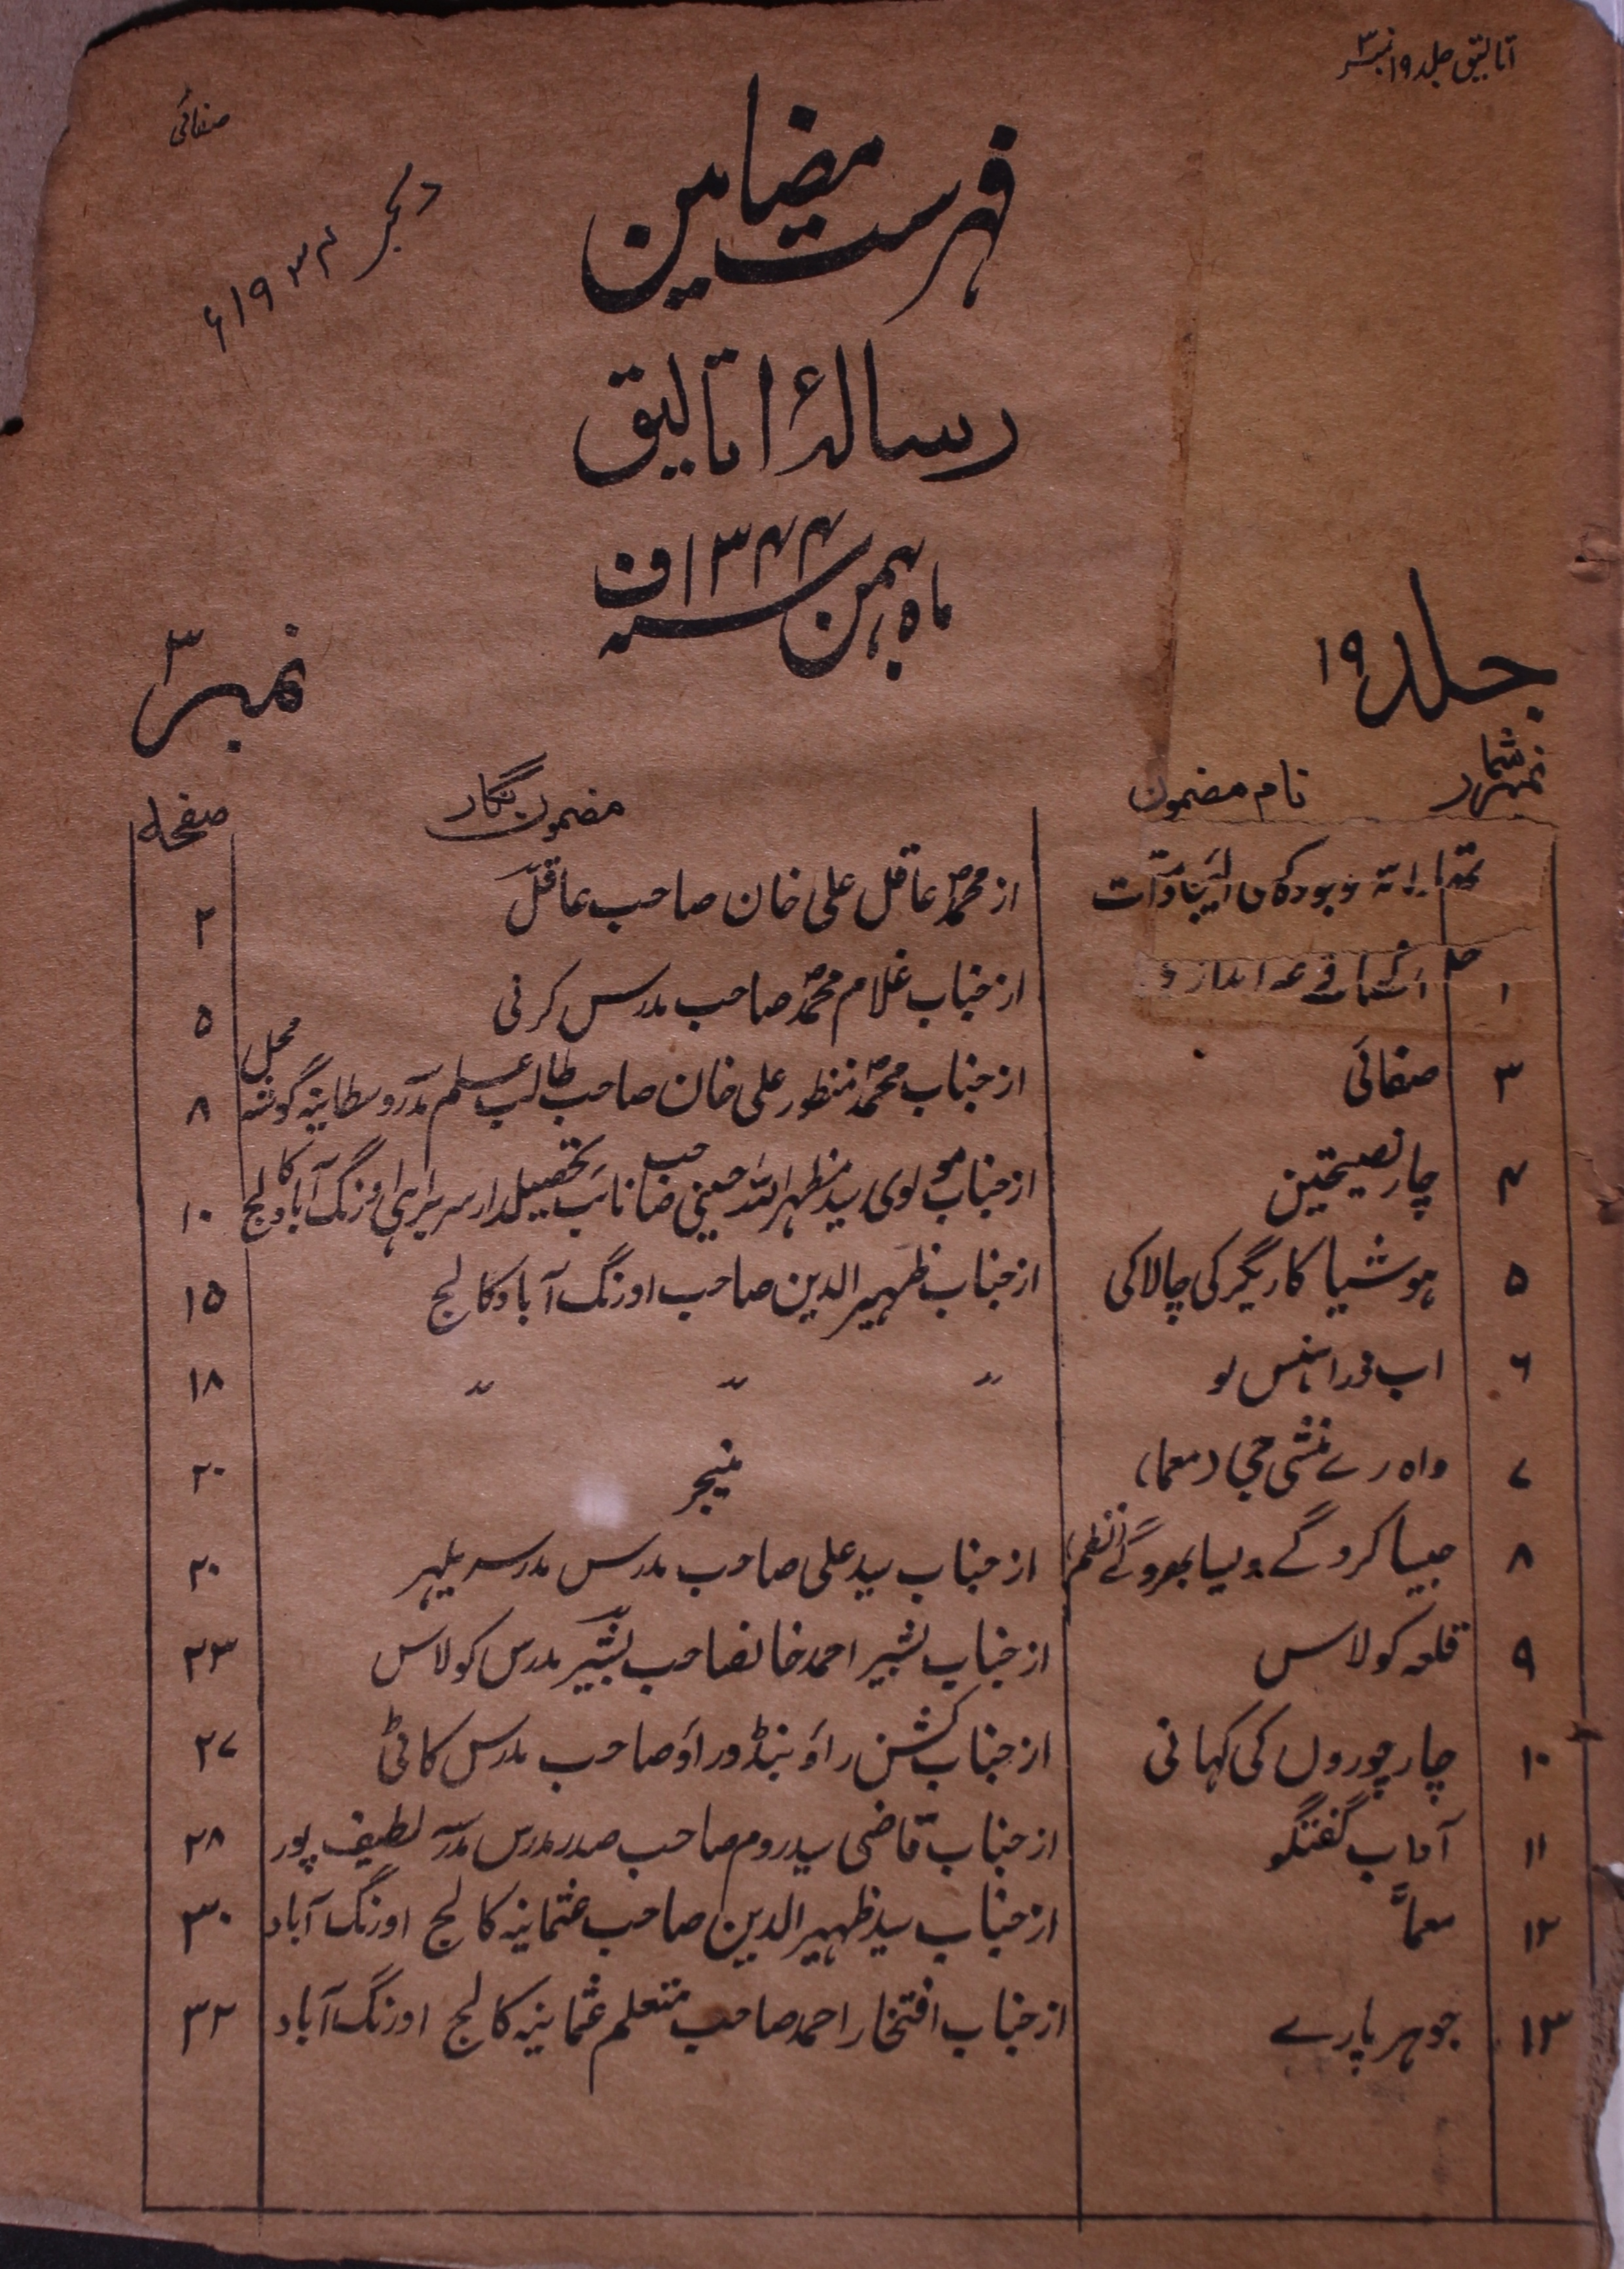 اتالیق جلد ۱۹ نمبر ۳
صفائی
فہرست مضامین
دسمبر ۱۹۳۴ء
رسالۂ اتالیق
ماہ بہمن سنہ ۱۳۴۴ف
جلد ۱۹
نمبر ۳
نمبر شمار نام مضمون مضمون نگار صفحہ
از محمدؐ عاقل علی خان صاحب عاقلؔ ۲
۱ از جناب غلام محمدؐ صاحب مدرس کرنی ۵
۳ صفائی از جناب محمدؐ منظور علی خان صاحب طالب علم مدرسہ وسطانیہ گوشہ محل ۸
۴ چار نصیحتین از جناب مولوی سید مظہر اللہ حسینی صاحب نائب تحصیلدار سربراہی اورنگ آباد کالج ۱۰
۵ ہوشیا کاریگر کی چالاکی از جناب ظہیر الدین صاحب اورنگ آباد کالج ۱۵
۶ اب ذرا ہنس لو " " " ۱۸
۷ واہ رے منشی جی (معما) منیجر ۲۰
۸ جیسا کروگے ویسا بھروگے (نظم) از جناب سید علی صاحب مدرس مدرسہ یلہر ۲۰
۹ قلعہ کولاس از جناب بشیر احمد خانصاحب بشیرؔ مدرس کولاس ۲۳
۱۰ چار چوروں کی کہانی از جناب کشن راؤ بنڈو راؤ صاحب مدرس کاٹی ۲۷
۱۱ آداب گفتگو از جناب قاضی سید روم صاحب صدر مدرس مدرسہ لطیف پور ۲۸
۱۲ معمّا از جناب سید ظہیر الدین صاحب عثمانیہ کالج اورنگ آباد ۳۰
۱۳ جوہر پارے از جناب افتخار احمد صاحب متعلم عثمانیہ کالج اورنگ آباد ۳۲